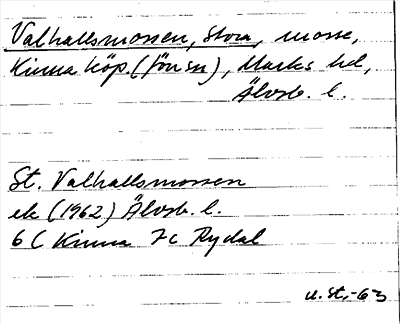 Valhallsmossen, Stora, mosse,
Kinna köp. (förs:n), Marks hd,
Älvsb. l.
St. Valhallsmossen
ek (1962) Älvsb. l.
6 C Kinna 7c Rydal
u. st. -63